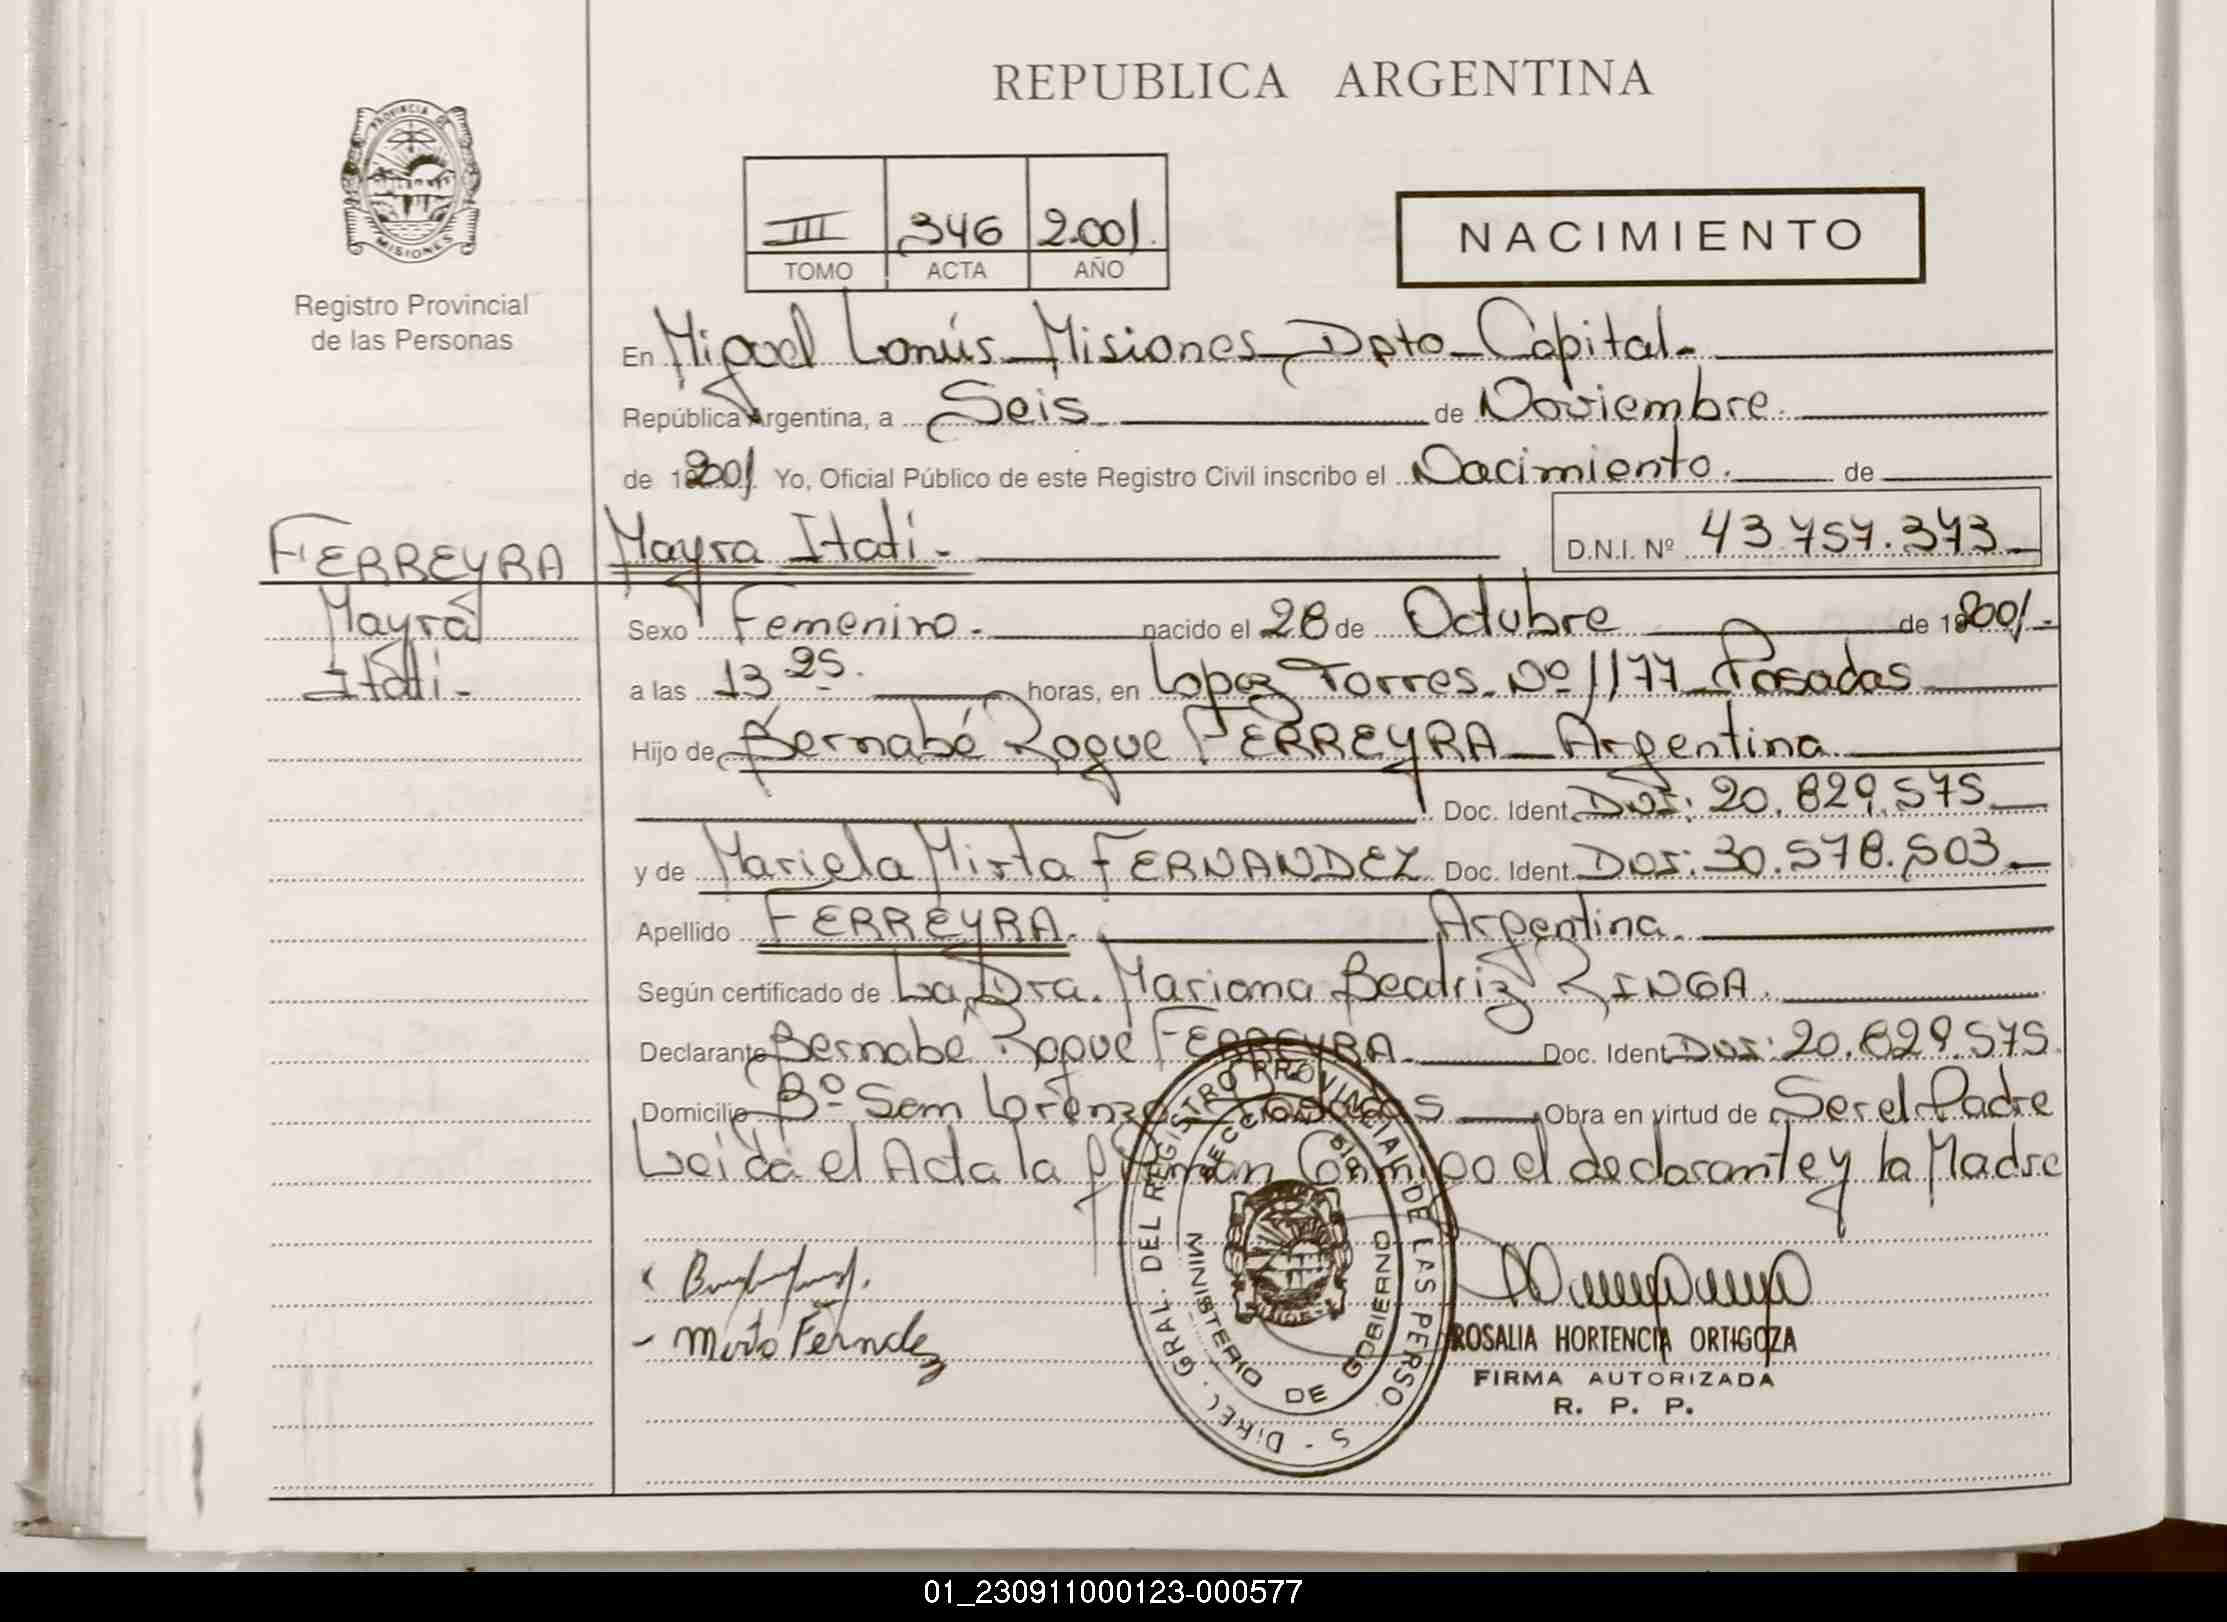 REPUBLICA ARGENTINA
PROVINCIA DE MISIONES
Registro Provincial
de las Personas
III 346 2.001.
TOMO ACTA AÑO
NACIMIENTO
En Miguel Lanús Misiones Dpto Capital.
República Argentina, a Seis de Noviembre.
de 2001 Yo, Oficial Público de este Registro Civil inscribo el Nacimiento. de
FERREYRA Mayra Itatí. D.N.I. Nº 43.757.373
Mayra
Itatí.
Sexo Femenino. nacido el 28 de Octubre de 2001.
a las 13 25. horas, en Lopez Torres Nº 1177 Posadas
Hijo de Bernabé Roque FERREYRA Argentina
Doc. Ident. DNI: 20.829.575
y de Mariela Mirta FERNANDEZ Doc. Ident. DNI: 30.578.503
Apellido FERREYRA. Argentina.
Según certificado de La Dra. Mariana Beatriz RINGA.
Declarante Bernabé Roque FERREYRA Doc. Ident. DNI: 20.829.575
Domicilio Bº San Lorenzo Posadas Obra en virtud de Ser el Padre
Leida el Acta la firman Conmigo el declarante y la Madre
DIREC. GRAL. DEL REGISTRO PROVINCIAL DE LAS PERSONAS
MINISTERIO DE GOBIERNO
Mirta Fernandez
ROSALIA HORTENCIA ORTIGOZA
FIRMA AUTORIZADA
R. P. P.
01_230911000123-000577